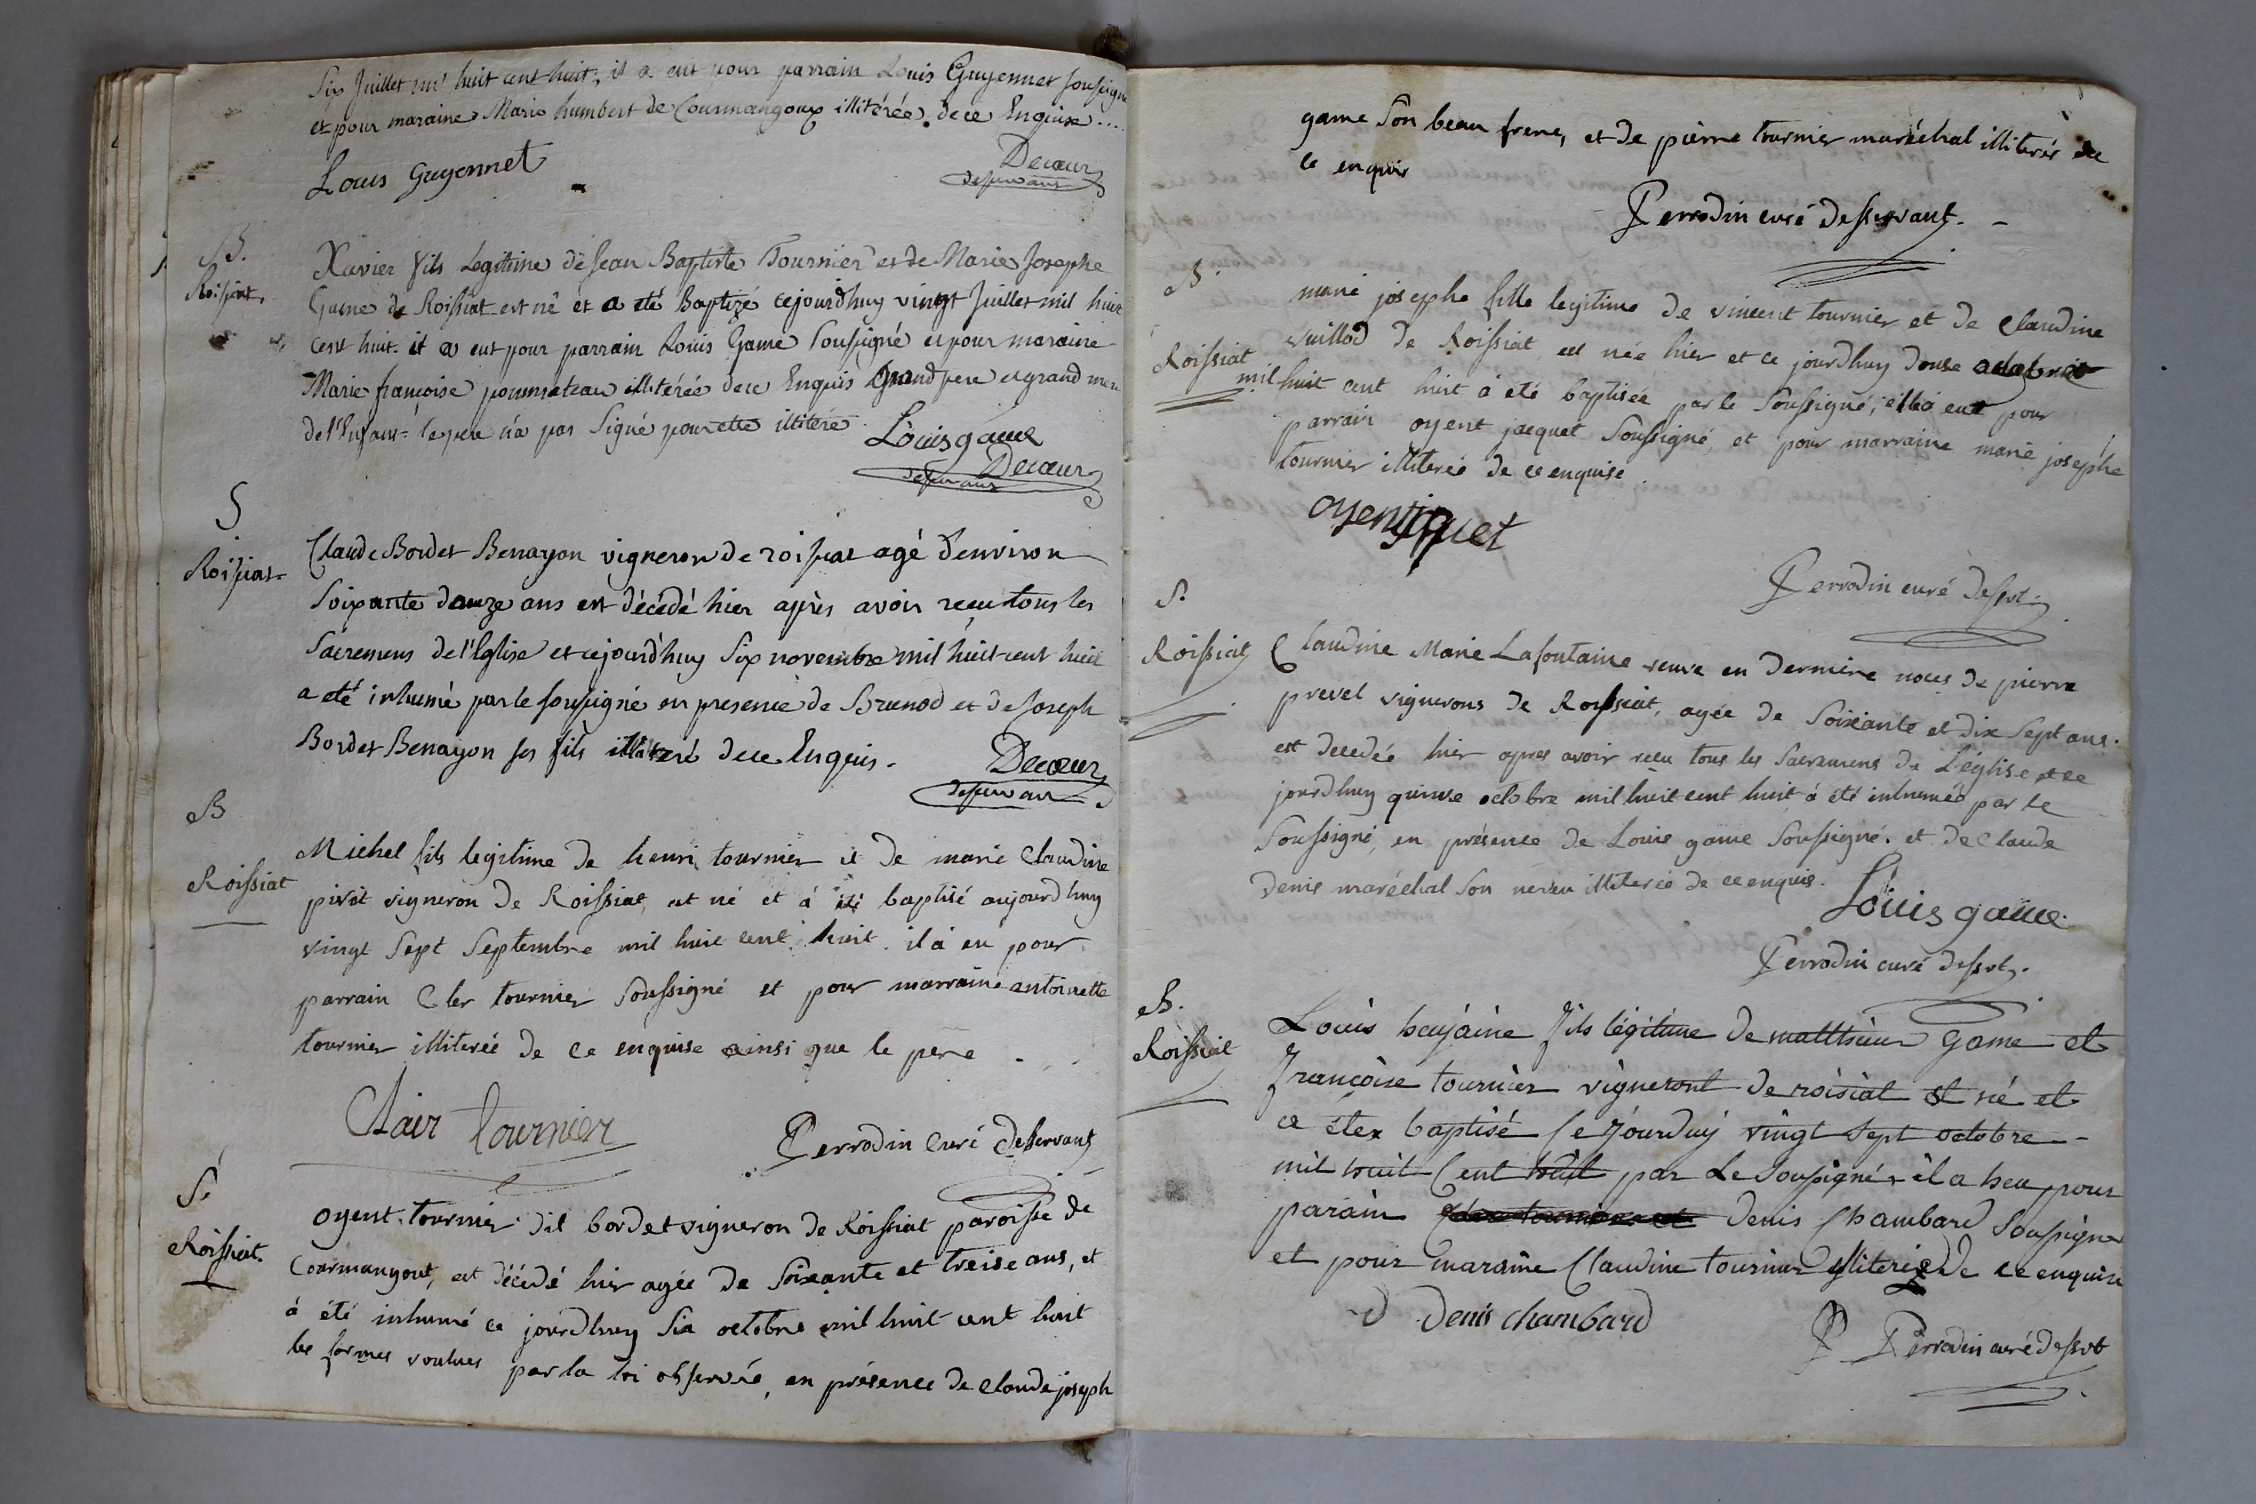 Six Juillet mil huit cent huit; il a eut pour parrain Louis Guyennet soussigné
et pour maraine Marie humbert de Courmangoux illitérée de ce Enquise....
Louis Guyennet
Decœur
desservant
B.
Roissiat.
Xavier fils Legitime de Jean Baptiste Tournier et de Marie Josephe
Game de Roissiat est né et a été Baptizé cejourdhuy vingt Juillet mil huit
cent huit. il a eut pour parrain Louis Game Soussigné et pour maraine
Marie françoise illitérée de ce Enquis Grand pere et grand mere
de l'Enfant = le pere n'a pas Signé pour etre illitéré
Louis game
Decœur
desservant
S
Roissiat
Claude Bordet Benayon vigneron de roissiat agé d'environ
Soixante douze ans est décédé hier après avoir reçu tous les
Sacremens de l'Eglise et cejourd'huy Six novembre mil huit cent huit
a eté inhumé par le soussigné en presence de Brunod et de Joseph
Bordet Benayon ses fils illiteré de ce Enquis.
Decœur
desservant
B
Roissiat
Michel fils legitime de henri tournier et de marie Claudine
pivit vigneron de Roissiat, est né et à été baptisé aujourdhuy
vingt Sept Septembre mil huit cent huit. il à eu pour
parrain Cler tournier Soussigné et pour marraine antoinette
tournier illiterée de ce enquise ainsi que le pere
Clair tournier
Perrodin Curé desservant
S.
Roissiat.
oyent tournier dit bordet vigneron de Roissiat paroisse de
Courmangout, est décédé hier agée de Soixante et treise ans, et
à été inhumé ce jourdhuy Six octobre mil huit cent huit
les formes voulues par la loi observée, en présence de Claude joseph
game Son beau frere, et de pierre tournier maréchal illiterés de
ce enquis
Perrodin curé desservant.
B.
Roissiat
marie josephe fille legitime de vincent tournier et de Claudine
vuillod de Roissiat est née hier et ce jourdhuy douse octobre
mil huit cent huit à été baptisée par le Soussigné; elle à eut pour
parrain oyent jacquet Soussigné, et pour marraine marie josephe
tournier illiterée de ce enquise
Perrodin curé desvt.
S.
Roissiat
Claudine Marie Lafontaine veuve en derniere noces de pierre
prevel vignerons de Roissiat, agée de Soixante et dix Sept ans.
est decedée hier apres avoir reçu tous les Sacremens de L'église et ce
jourdhuy quinse octobre mil huit cent huit à été inhumée par le
Soussigné, en présence de Louis game Soussigné. et de Claude
denis maréchal Son neveu illiterée de ce enquis.
Louis game
Perrodin curé desvt.
B.
Roissiat
Louis fils légitime de matthieu Game et
françoise tournier vigneront de roisiat est né et
a étez baptisé Ce Jourduy vingt Sept octobre
mil huit Cent huit par Le Soussigné il a heu pour
parain denis Chambard Soussigne
et pour maraine Claudine tournier de ce enquise
D Denis chambard
P Perrodin curé desvt